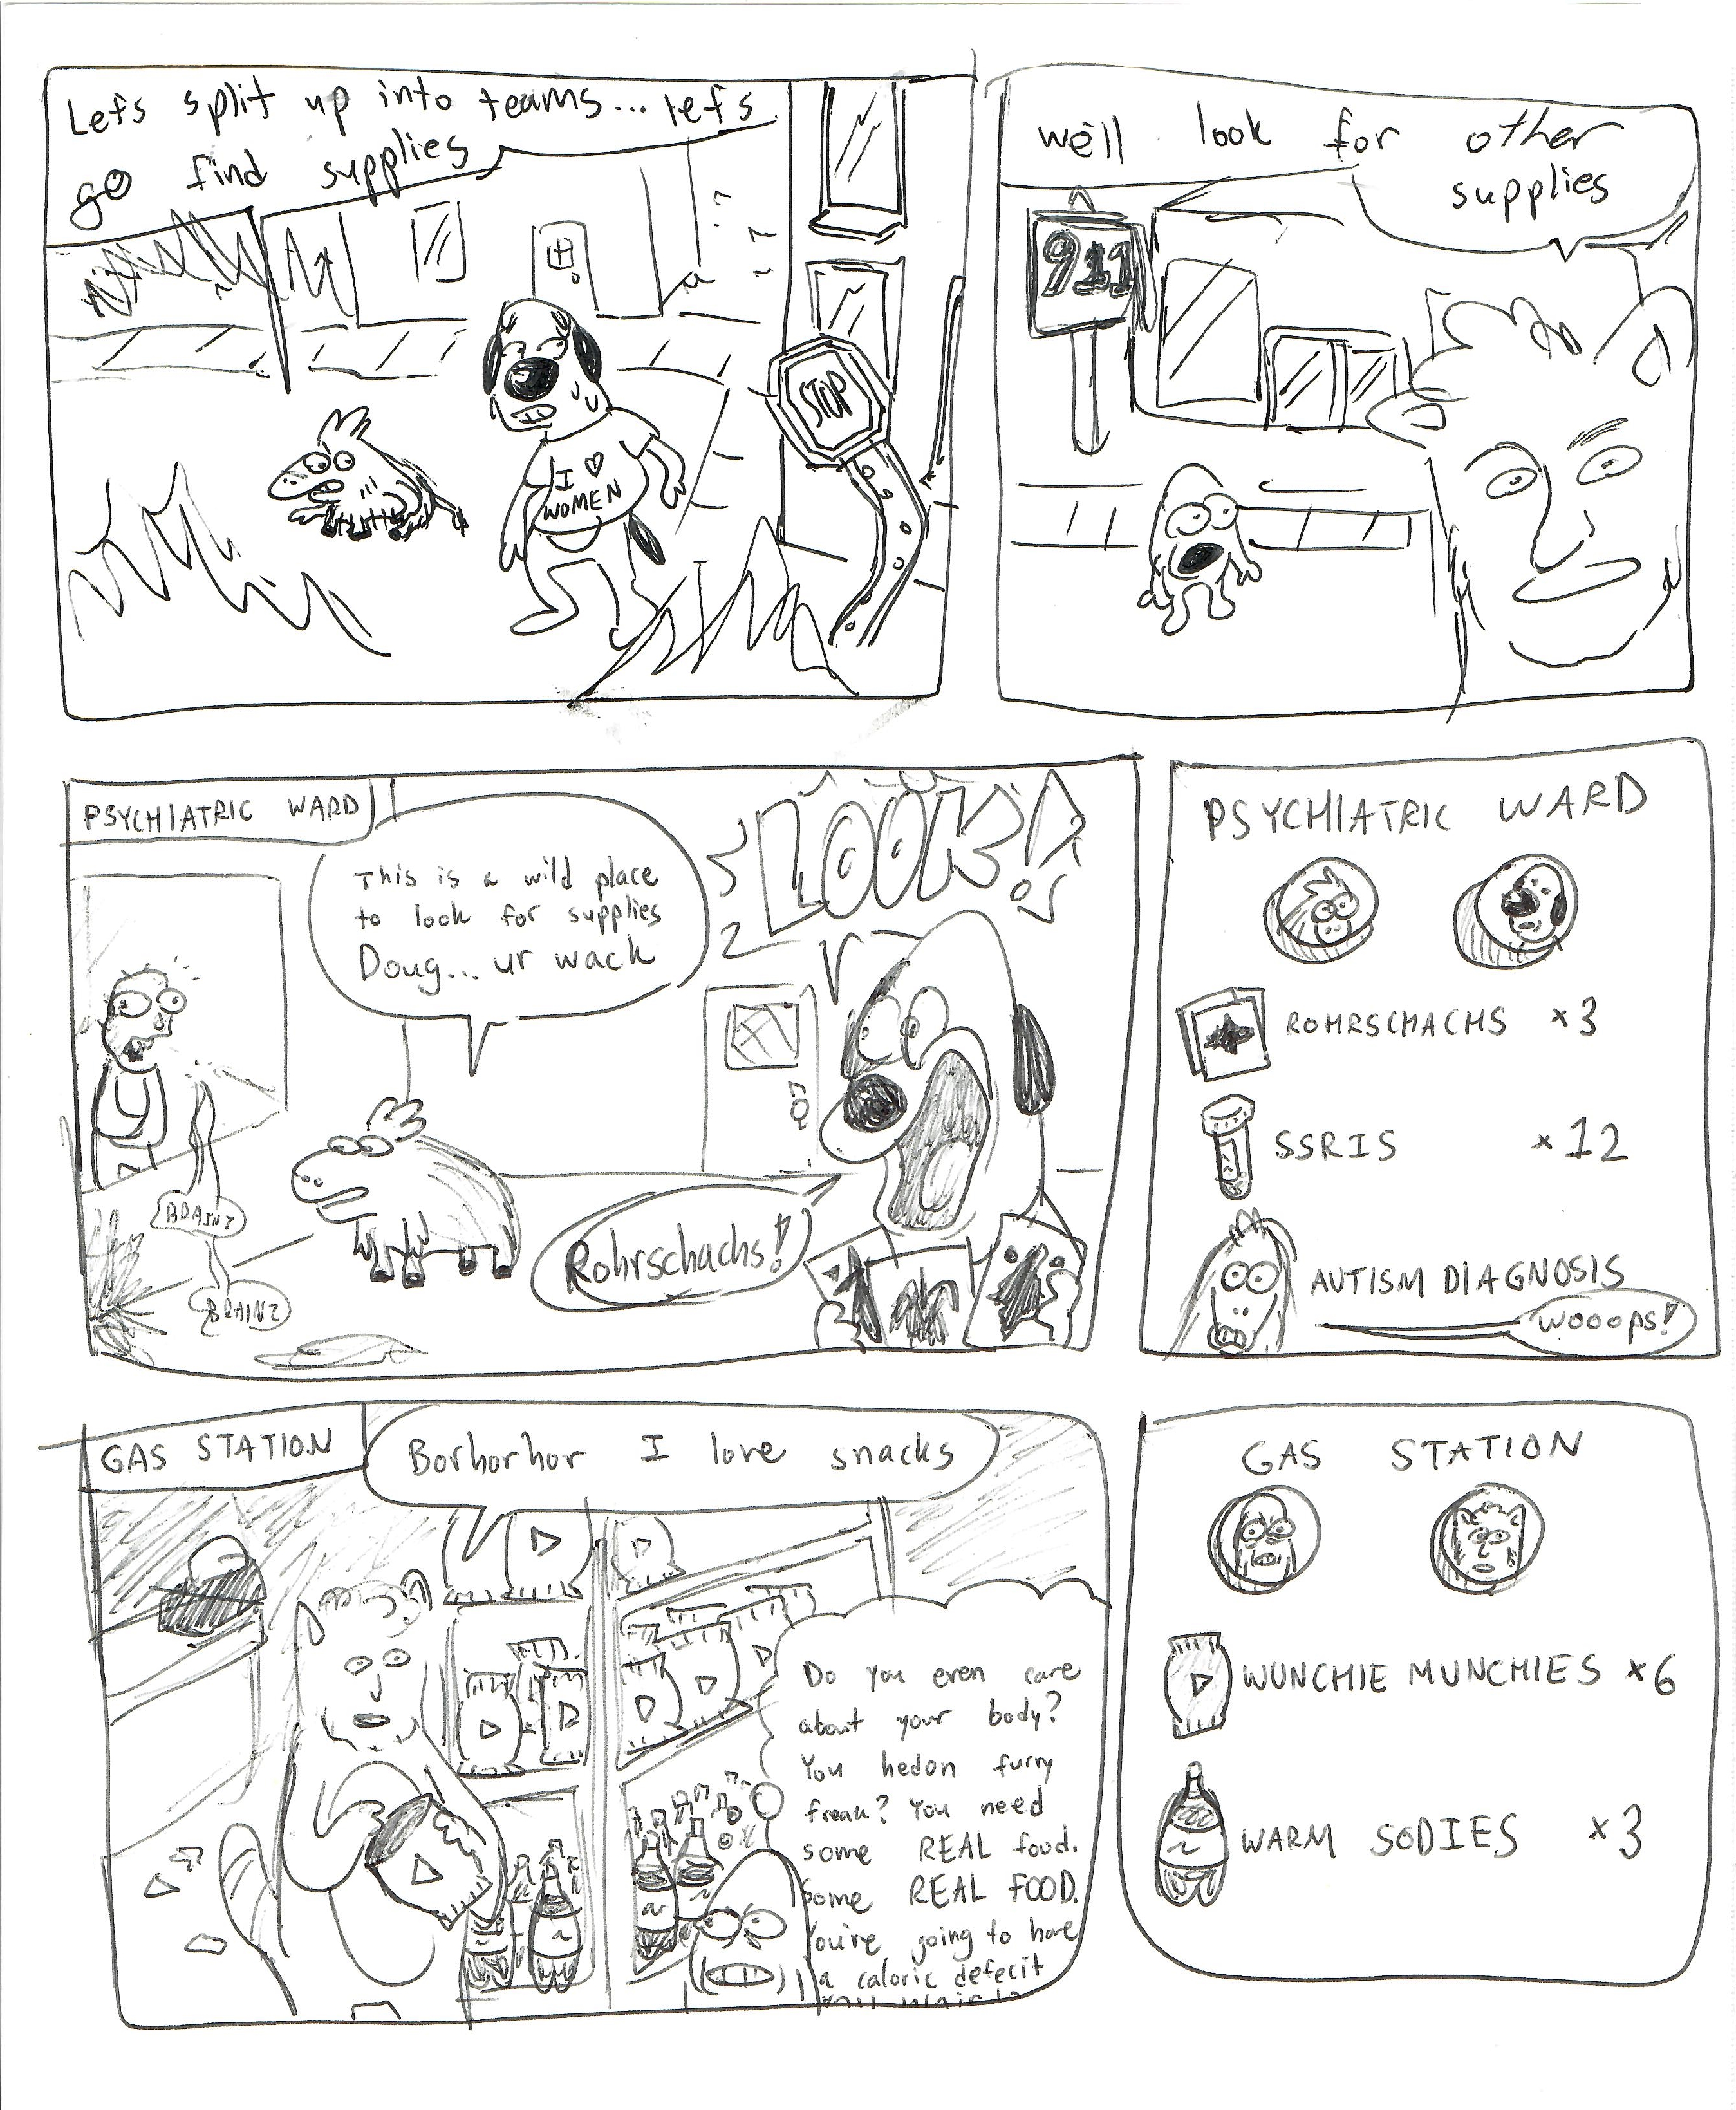 Let's split up into teams... let's
go find supplies
I ♡
WOMEN
STOP
we'll look for other
supplies
911
PSYCHIATRIC WARD
This is a wild place
to look for supplies
Doug... ur wack
LOOK!
Rohrschachs!
BRAINZ
BRAINZ
PSYCHIATRIC WARD
ROHRSCHACHS x3
SSRIS x12
AUTISM DIAGNOSIS
wooops!
GAS STATION
Borhorhor I love snacks
Do you even care
about your body?
You hedon furry
freak? You need
some REAL food.
Some REAL FOOD.
You're going to have
a caloric defecit
GAS STATION
WUNCHIE MUNCHIES x6
WARM SODIES x3